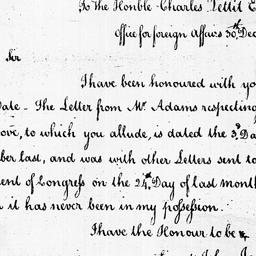 To the Honble Charles Pettit E
Office for foreign Affairs 30th Dec
Sir
I have been honoured with yo
Date - The Letter from Mr Adams respecting
ove, to which you allude, is dated the 3d Da
ber last, and was with other Letters sent to
ent of Congress on the 24th Day of last month
it has never been in my possession.
I have the Honour to be &
John